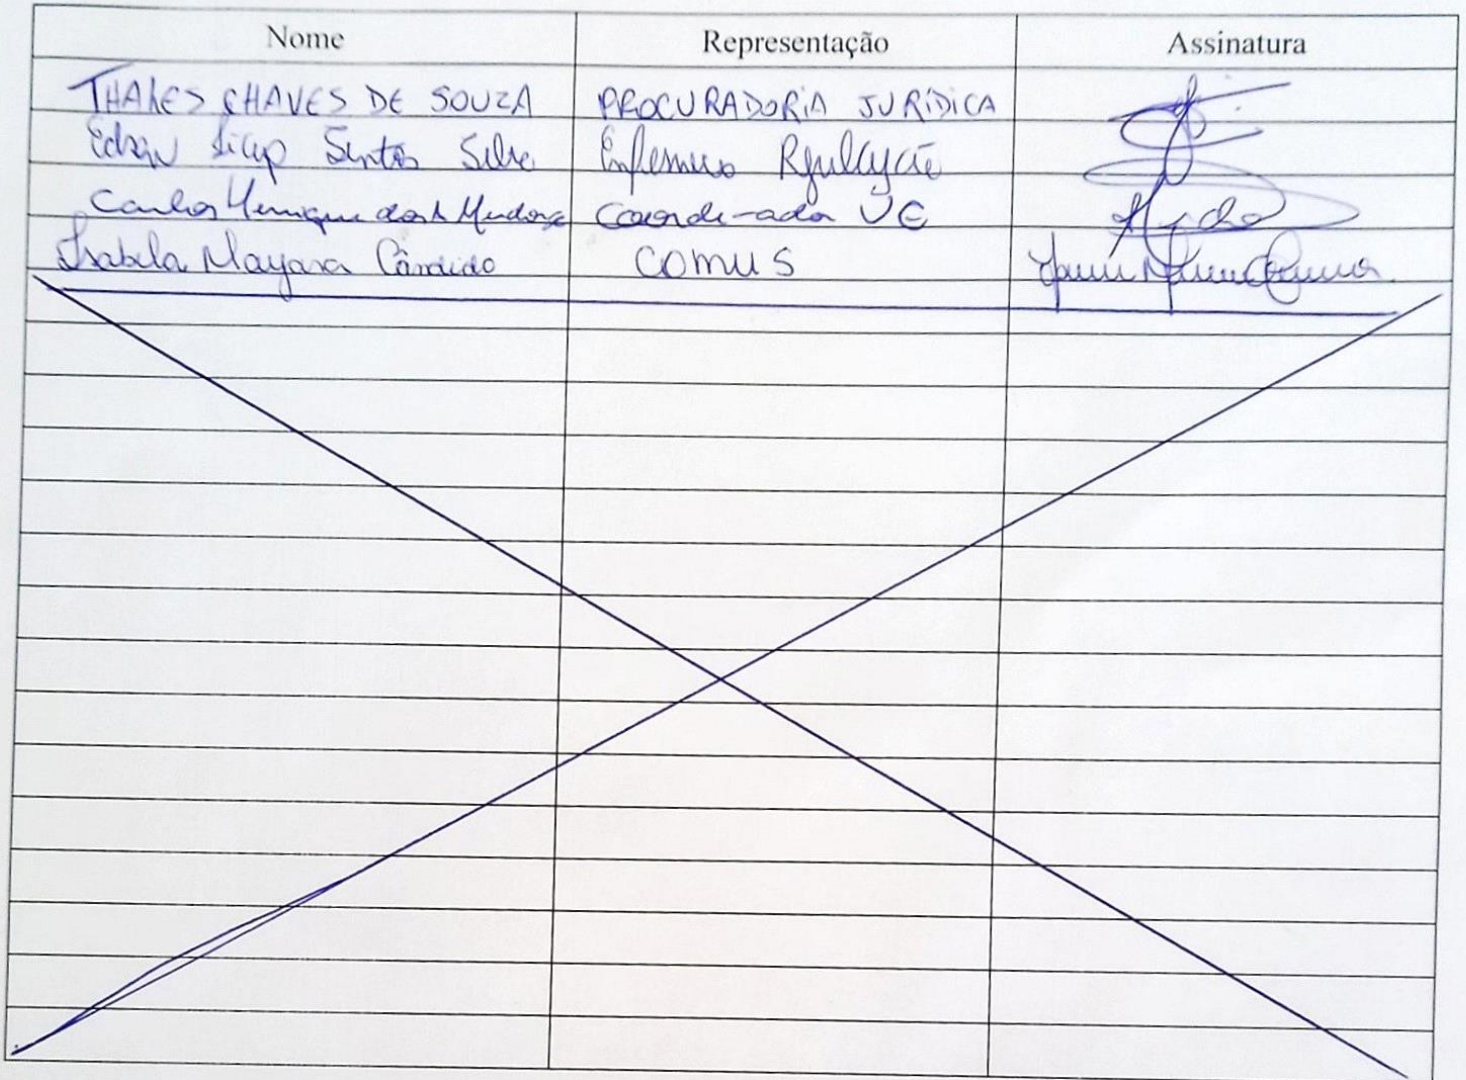 Nome Representação Assinatura
THALES CHAVES DE SOUZA PROCURADORIA JURÍDICA
Santos Silva Enfermeiro Regulação
Carlos Henrique dos Mendonça Coordenador UE
Isabela Mayara Cândido COMUS